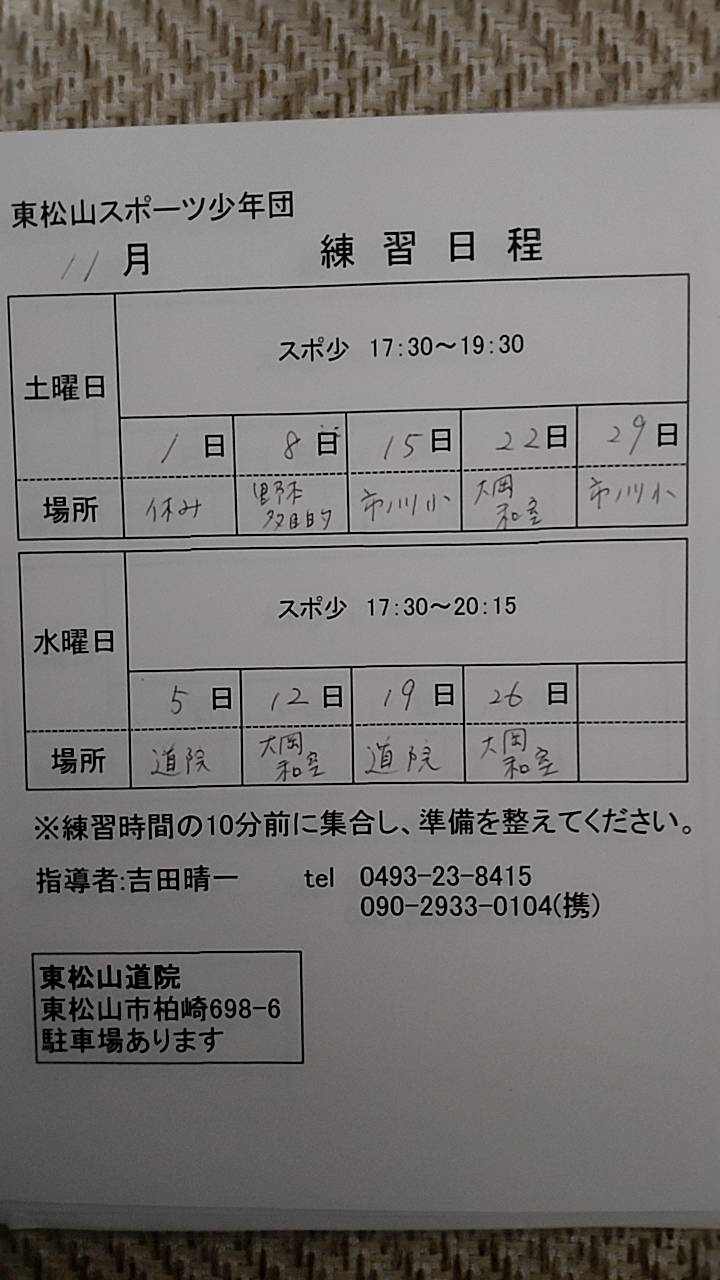 東松山スポーツ少年団
11月 練習日程
土曜日
スポ少 17:30～19:30
1日 8日 15日 22日 29日
場所 休み 野本多目的 市川小 大岡和室 市川小
水曜日
スポ少 17:30～20:15
5日 12日 19日 26日
場所 道院 大岡和室 道院 大岡和室
※練習時間の10分前に集合し、準備を整えてください。
指導者:吉田晴一 tel 0493-23-8415
090-2933-0104(携)
東松山道院
東松山市柏崎698-6
駐車場あります